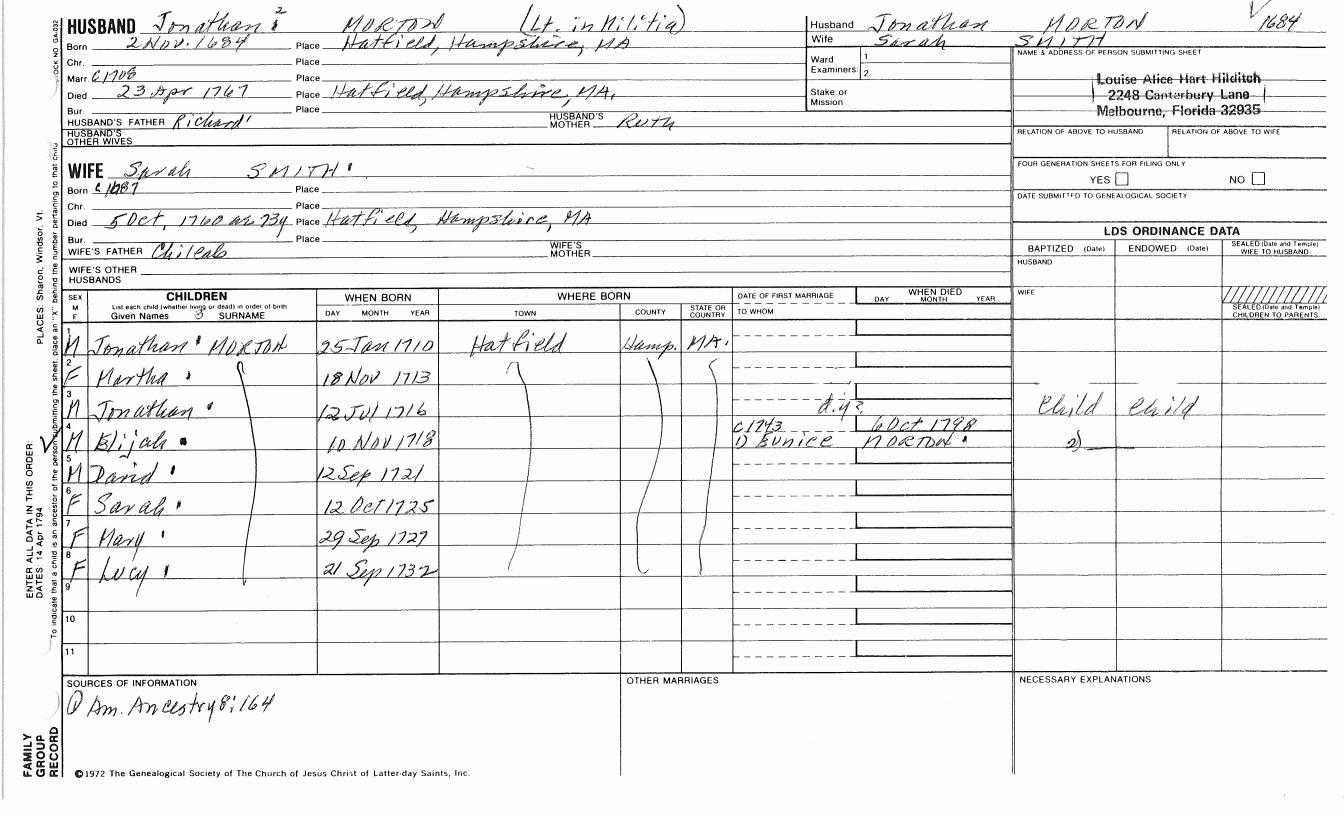 HUSBAND Jonathan 2 MORTON (Lt. in Militia)
Born 2 Nov. 1684 Place Hatfield, Hampshire, MA
Chr. Place
Marr c 1708 Place
Died 23 Apr 1767 Place Hatfield, Hampshire, MA.
Bur. Place
HUSBAND'S FATHER Richard HUSBAND'S MOTHER Ruth
HUSBAND'S OTHER WIVES
Husband Jonathan MORTON 1684
Wife Sarah SMITH
Ward
Examiners: 1
2
Stake or
Mission
NAME & ADDRESS OF PERSON SUBMITTING SHEET
Louise Alice Hart Hilditch
2248 Canterbury Lane
Melbourne, Florida 32935
RELATION OF ABOVE TO HUSBAND RELATION OF ABOVE TO WIFE
FOUR GENERATION SHEETS FOR FILING ONLY
YES NO
DATE SUBMITTED TO GENEALOGICAL SOCIETY
WIFE Sarah SMITH
Born c 1687 Place
Chr. Place
Died 5 Oct, 1760 ae 73y Place Hatfield, Hampshire, MA
Bur. Place
WIFE'S FATHER Chileab WIFE'S MOTHER
WIFE'S OTHER
HUSBANDS
LDS ORDINANCE DATA
BAPTIZED (Date) ENDOWED (Date) SEALED (Date and Temple) WIFE TO HUSBAND
HUSBAND
WIFE
SEALED (Date and Temple) CHILDREN TO PARENTS
SEX M F CHILDREN List each child (whether living or dead) in order of birth Given Names 3 SURNAME WHEN BORN DAY MONTH YEAR WHERE BORN TOWN COUNTY STATE OR COUNTRY DATE OF FIRST MARRIAGE TO WHOM WHEN DIED DAY MONTH YEAR
1 M Jonathan MORTON 25 Jan 1710 Hatfield Hamp. MA.
2 F Martha 18 Nov 1713
3 M Jonathan 12 Jul 1716 d.y. Child Child
4 M Elijah 10 Nov 1718 c1743 6 Oct 1798
1) Eunice MORTON 2)
5 M David 12 Sep 1721
6 F Sarah 12 Oct 1725
7 F Mary 29 Sep 1727
8 F Lucy 21 Sep 1732
9
10
11
SOURCES OF INFORMATION
① Am. Ancestry 8:164
OTHER MARRIAGES
NECESSARY EXPLANATIONS
©1972 The Genealogical Society of The Church of Jesus Christ of Latter-day Saints, Inc.
FAMILY
GROUP
RECORD
ENTER ALL DATA IN THIS ORDER:
DATES: 14 Apr 1794 PLACES: Sharon, Windsor, Vt.
To indicate that a child is an ancestor of the person submitting the sheet, place an "X" behind the number pertaining to that child.
STOCK NO. GA-032